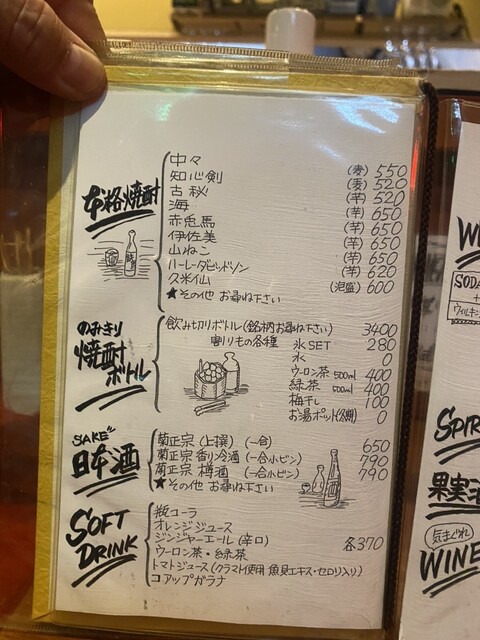 本格焼酎
中々 (麦) 550
知心剣 (麦) 520
古秘 (芋) 520
海 (芋) 650
赤兎馬 (芋) 650
伊佐美 (芋) 650
山ねこ (芋) 650
ハーレーダビッドソン (芋) 620
久米仙 (泡盛) 600
★その他 お尋ね下さい
のみきり
焼酎
ボトル
飲み切りボトル(銘柄お尋ね下さい) 3400
割りもの各種 氷SET 280
水 0
ウーロン茶 500ml 400
緑茶 500ml 400
梅干し 100
お湯ポット 0
SAKE
日本酒
菊正宗 (上撰) (一合) 650
菊正宗 香り冷酒 (一合小ビン) 790
菊正宗 樽酒 (一合小ビン) 790
★その他 お尋ね下さい
SOFT
DRINK
瓶コーラ
オレンジジュース
ジンジャーエール (辛口) 各370
ウーロン茶・緑茶
トマトジュース (クラマト使用 魚貝エキス・セロリ入り)
コアップガラナ
SODA
ウィルキン
SPIR
果実酒
気まぐれ
WINE